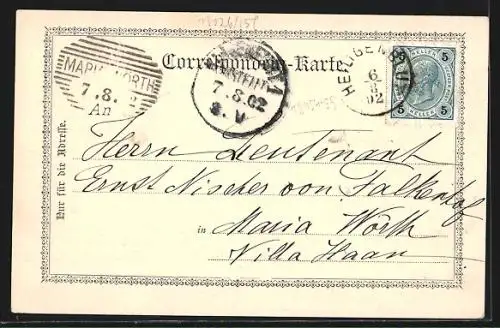 Correspondenz-Karte.
MARIA WÖRTH
7.8.2
An
7.8.02
HEILIGENBLUT
6
8
02
5 5
HELLER HELLER
Nur für die Adresse.
Herrn Lieutenant
Ernst Nischer von Falkenhof
in Maria Wörth
Villa Haan